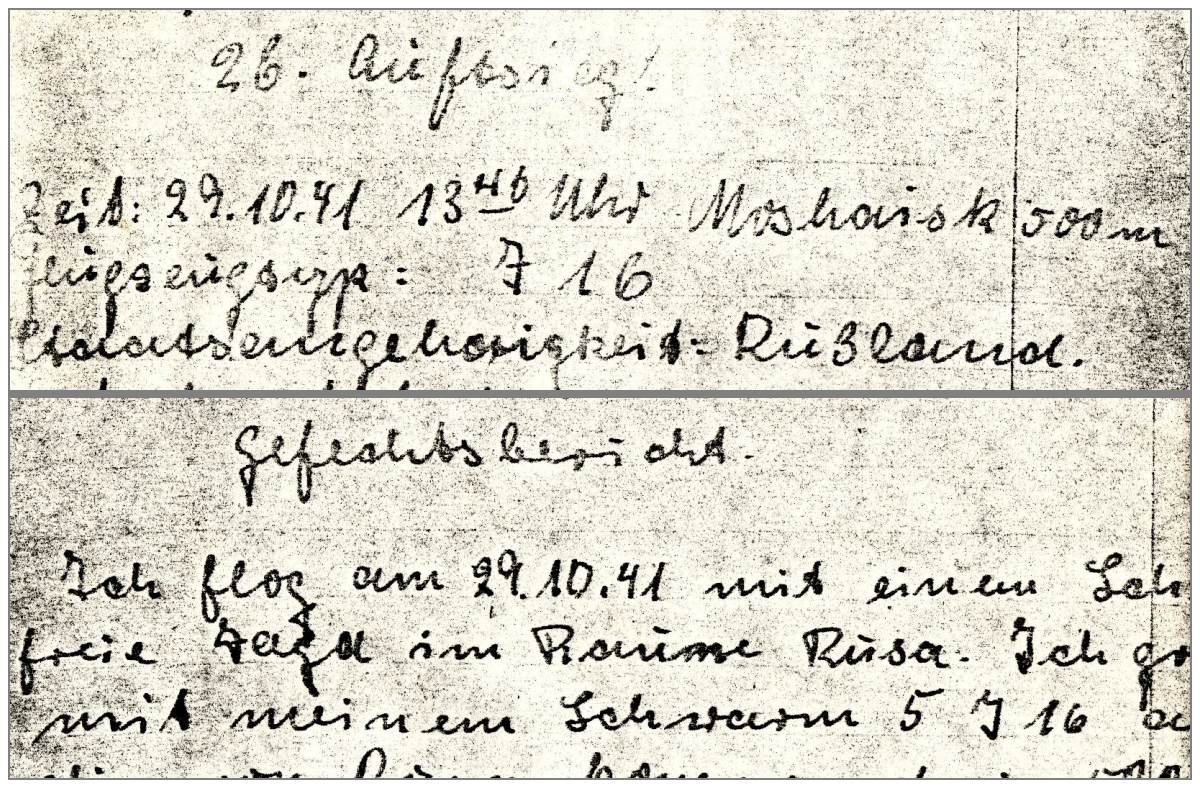 26. Luftsieg!
Zeit: 29.10.41 13 46 Uhr Moshaisk 500 m
Flugzeugtyp: J 16
Staatsangehörigkeit: Rußland.
Gefechtsbericht.
Ich flog am 29.10.41 mit einem Sch
freie Jagd im Raume Rusa. Ich
mit meinem Schwarm 5 J 16